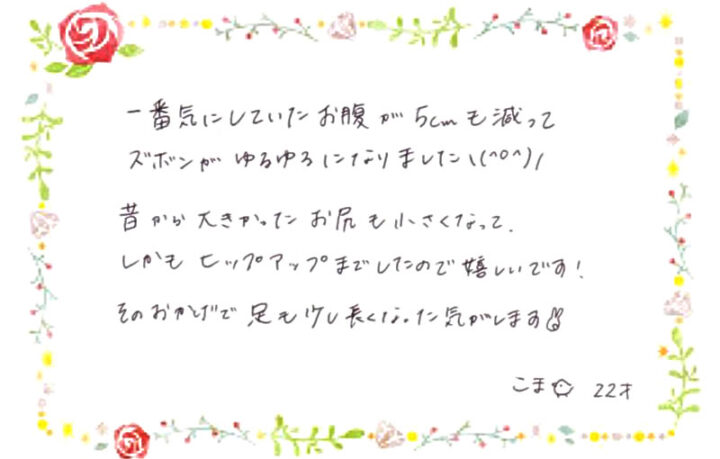 一番気にしていたお腹が5cmも減って
ズボンがゆるゆるになりました\(^o^)/
昔から大きかったお尻も小さくなって、
しかもヒップアップまでしたので嬉しいです!
そのおかげで足も少し長くなった気がします
こま 22才